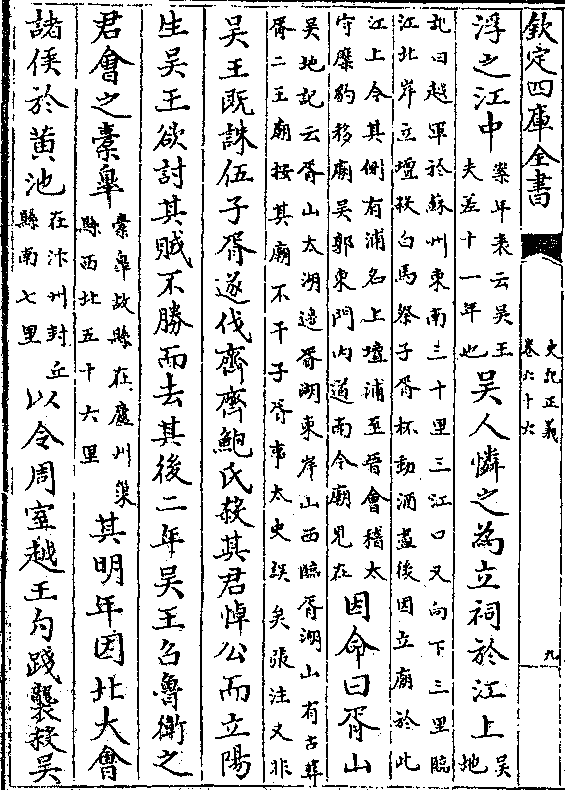 欽定四庫全書
史記正義
卷六十六
九
浮之江中
案年表云吳王
夫差十一年也
吳人憐之為立祠於江上
吳
地
記曰越軍於蘇州東南三十里三江口又向下三里臨
江北岸立壇殺白馬祭子胥杯動酒盡後因立廟於此
江上今其側有浦名上壇浦至晉會稽太
守麋豹移廟吳郭東門内道南今廟見在
因命曰胥山
吳地記云胥山太湖邊胥湖東岸山西臨胥湖山有古葬
胥二王廟按其廟不干子胥事太史誤矣張注又非
吳王既誅伍子胥遂伐齊齊鮑氏殺其君悼公而立陽
生吳王欲討其賊不勝而去其後二年吳王召魯衛之
君會之橐皐
橐皐故縣在廬州巢
縣西北五十六里
其明年因北大會
諸侯於黄池
在汴州封丘
縣南七里
以令周室越王句踐襲殺吳